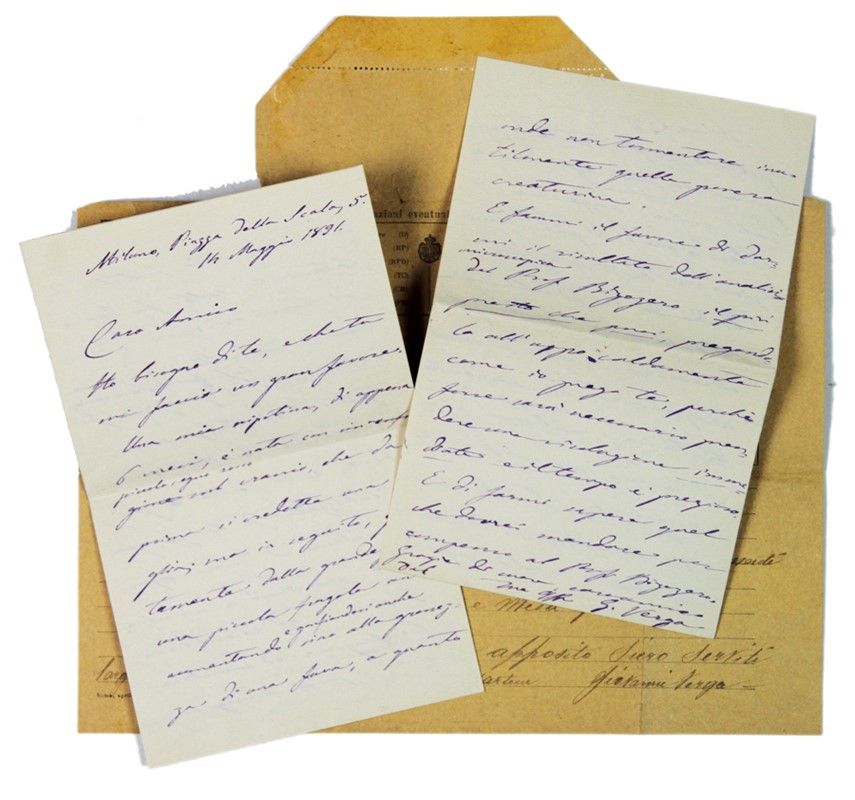 Milano, Piazza della Scala, 5.
14 Maggio 1891.
Caro Amico
Ho bisogno di te, e che tu
mi faccia un gran favore.
Una mia nipotina, di appena
6 mesi, è nata con
piccola, ogni
sul cranio, che da
prima si credette una
ma in seguito,
tamente dalla grandezza
una piccola fragola
aumentando e gonfiandosi anche
sino alla grossez-
za di una fava, a quanto
onde non tormentare inu-
tilmente quella povera
creaturina.
E fammi il favore di dar-
mi il risultato dell'analisi
microscopica
del Prof. Bizzozero il più
presto che puoi, pregando-
lo caldamente
come io prego te, perchè
forse sarà necessario pren-
dere una risoluzione imme-
diata e il tempo è prezioso.
E di farmi sapere quel
che dovrei mandare per
compenso al Prof. Bizzozero.
Grazie di cuore
Dal tuo aff. G. Verga
azioni eventuali
(D)
(RP)
(TC)
e
apposito Siero
Giovanni Verga